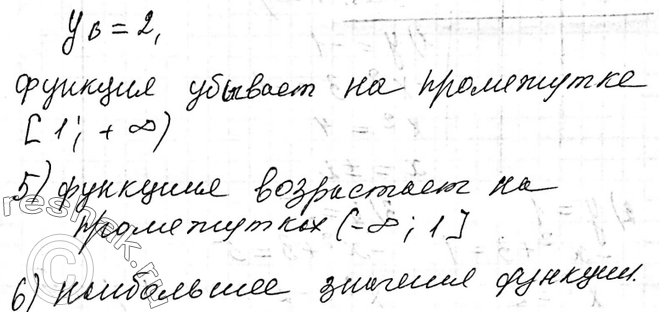 yв = 2,
функция убывает на промежутке
[1; +∞)
5) функция возрастает на
промежутках (-∞; 1]
6) наибольшее значения функции.
reshak.ru